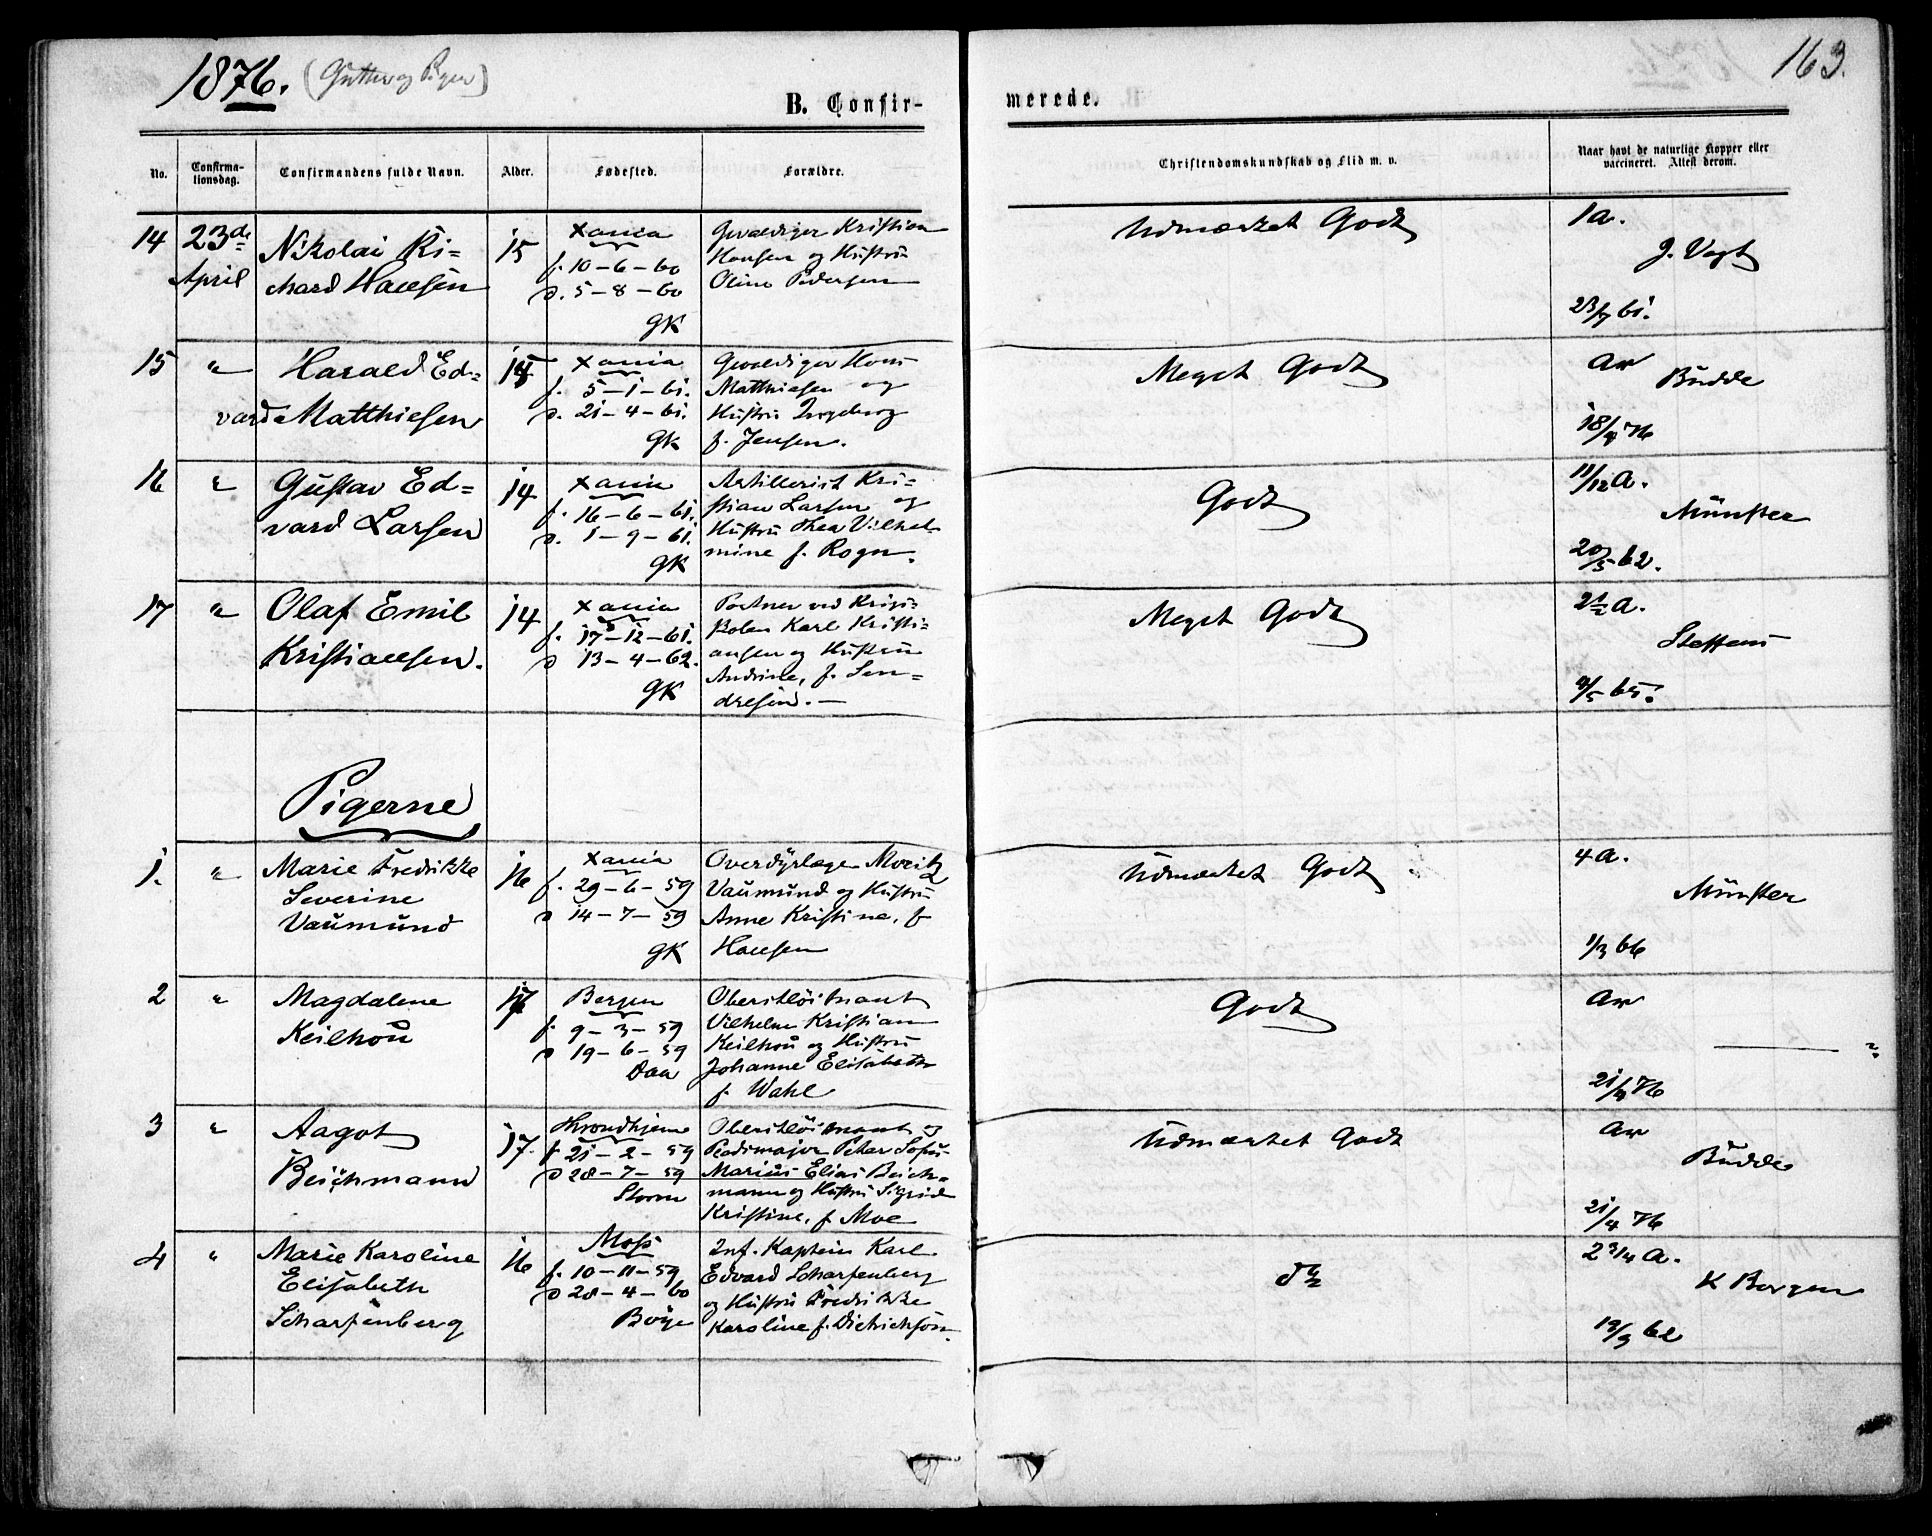 1876. (Gutter og Piger)
163.
B. Confir-
merede.
No.
Confirma-
tionsdag.
Confirmandens fulde Navn.
Alder.
Fødested.
Forældre.
Christendomskundskab og Flid m. v.
Naar havt de naturlige Kopper eller
vaccineret. Attest derom.
14
23de
April
Nikolai Ri-
chard Hansen
15
Xania
f. 10-6-60
d. 5-8-60
GK
Gevaldiger Kristian
Hansen og Hustru
Oline Pedersen
Udmærket Godt
1a.
J. Vogt
23/7 61.
15
"
Harald Ed-
vard Matthiesen
15
Xania
f. 5-1-61.
d. 21-4-61.
GK
Gevaldiger Hans
Matthiesen og
Hustru Ingeborg
f. Jensen.
Meget Godt
av
Budde
18/4 76
16
"
Gustav Ed-
vard Larsen
14
Xania
f. 16-6-61.
d. 1-9-61.
GK
Artillerist Kri-
stian Larsen og
Hustru Thea Vilhel
mine f. Rogn.
Godt
11/12 a.
Münster
20/5 62.
17
"
Olaf Emil
Kristiansen.
14
Xania
f. 17-12-61.
d 13-4-62.
GK
Portner ved Krigs-
skolen Karl Kristi-
ansen og Hustru
Andrine, f. Sen-
dresen.-
Meget Godt
2½ a.
Steffens
4/5 65.
Pigerne
1.
"
Marie Fredrikke
Severine
Vaumund
16
Xania
f. 29-6-59
d 14-7-59
GK
Overdyrlæge Moritz
Vaumund og Hustru
Anne Kristine, f
Hansen
Udmærket Godt
4 a.
Münster
1/3 66
2
"
Magdalene
Keilhau
17
Bergen
f. 9-3-59
d 19-6-59
Daa
Oberstløitnant
Vilhelm Kristian
Keilhau og Hustru
Johanne Elisabeth
f. Wahl
Godt
av
21/4 76
3
"
Aagot
Beichmann
17.
Throndhjem
f 21-2-59
d 28-7-59
Storm
Oberstløitnant og
Pladsmajor Peter Sofus
Marius Elias Beich-
mann og Hustru Sigrid
Kristine, f Moe
Udmærket Godt
av
Budde
21/4 76
4
"
Marie Karoline
Elisabeth
Scharfenberg
16
Moss
f. 10-11-59
d 28-4-60
Bøye
Inf. Kaptein Karl
Edvard Scharfenberg
og Hustru Fredrikke
Karoline f. Dietrichson.
do
2 3/4 a.
K Borgen
19/9 62